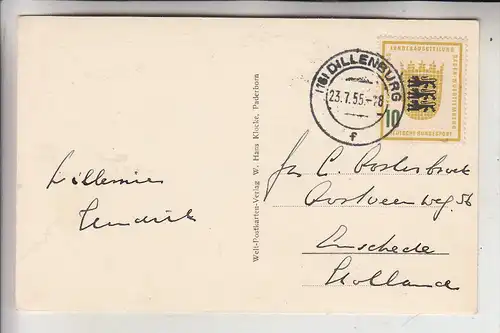 (16) DILLENBURG
23.7.55.-18
f
LANDESAUSSTELLUNG
BADEN-WÜRTTEMBERG
10
DEUTSCHE BUNDESPOST
Welt-Postkarten-Verlag W. Hans Klocke, Paderborn
Willemien
Hendrik
Fam C. Oosterbroek
Oostveenweg 56
Enschede
Holland